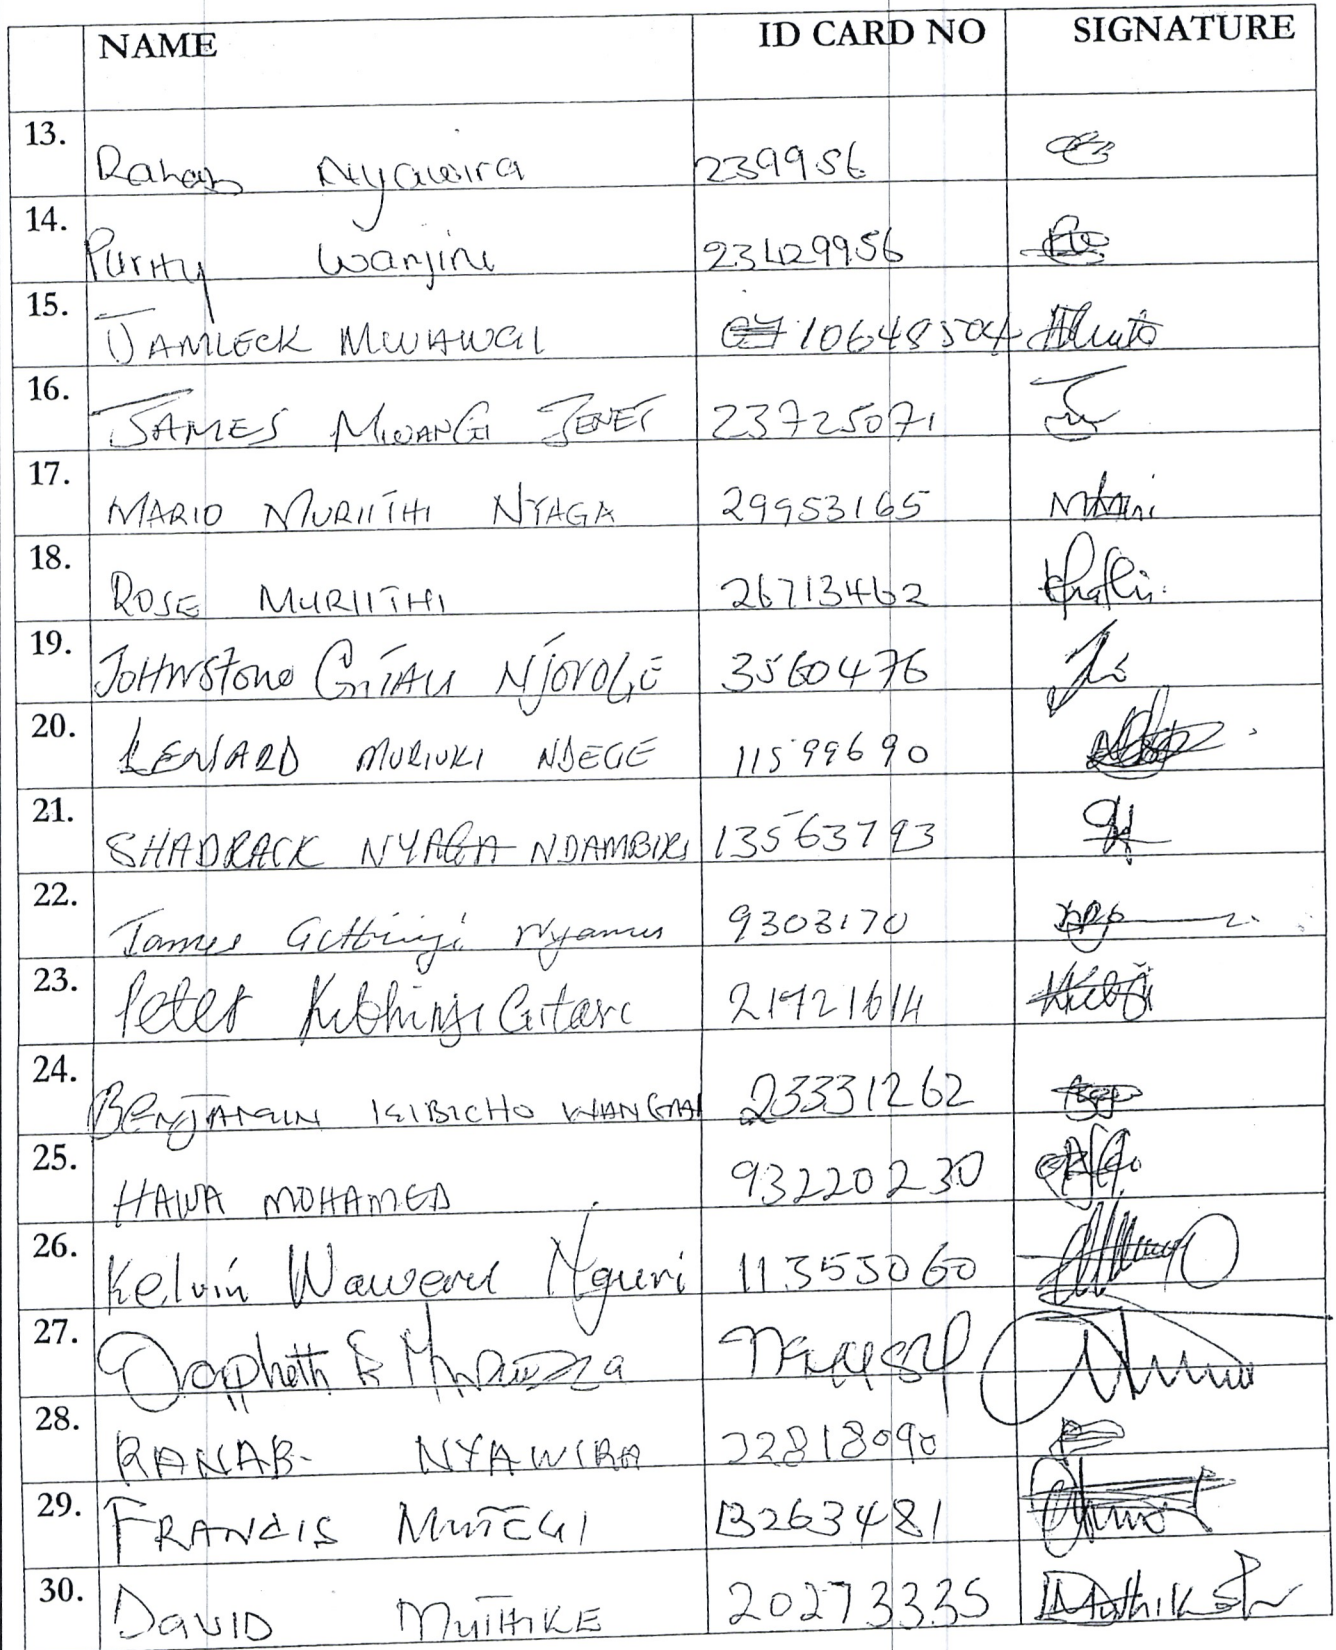 NAME ID CARD NO SIGNATURE
13. Rahab Nyawira 239956
14. Purity Wanjiru 23429956
15. JAMLECK MWAWGI 10648504
16. JAMES MWANGI JENET 23725071
17. MARIO MURIITHI NYAGA 29953165
18. ROSE MURIITHI 26713462
19. JOHNSTONE GITAU NJOROGE 3560476
20. LENARD MURIUKI NDEGE 11599690
21. SHADRACK NYAGA NDAMBIRI 13563793
22. James Githinji Nyamu 9303170
23. Peter Kibhinji Gitari 21921614
24. BENJAMIN KIBICHO WANGAI 23331262
25. HAWA MOHAMED 93220230
26. Kelvin Waweru Nguri 11355060
27.
28. RAHAB NYAWIRA 22818090
29. FRANCIS MUTEGI 13263481
30. DAVID MUTHIKE 20273335